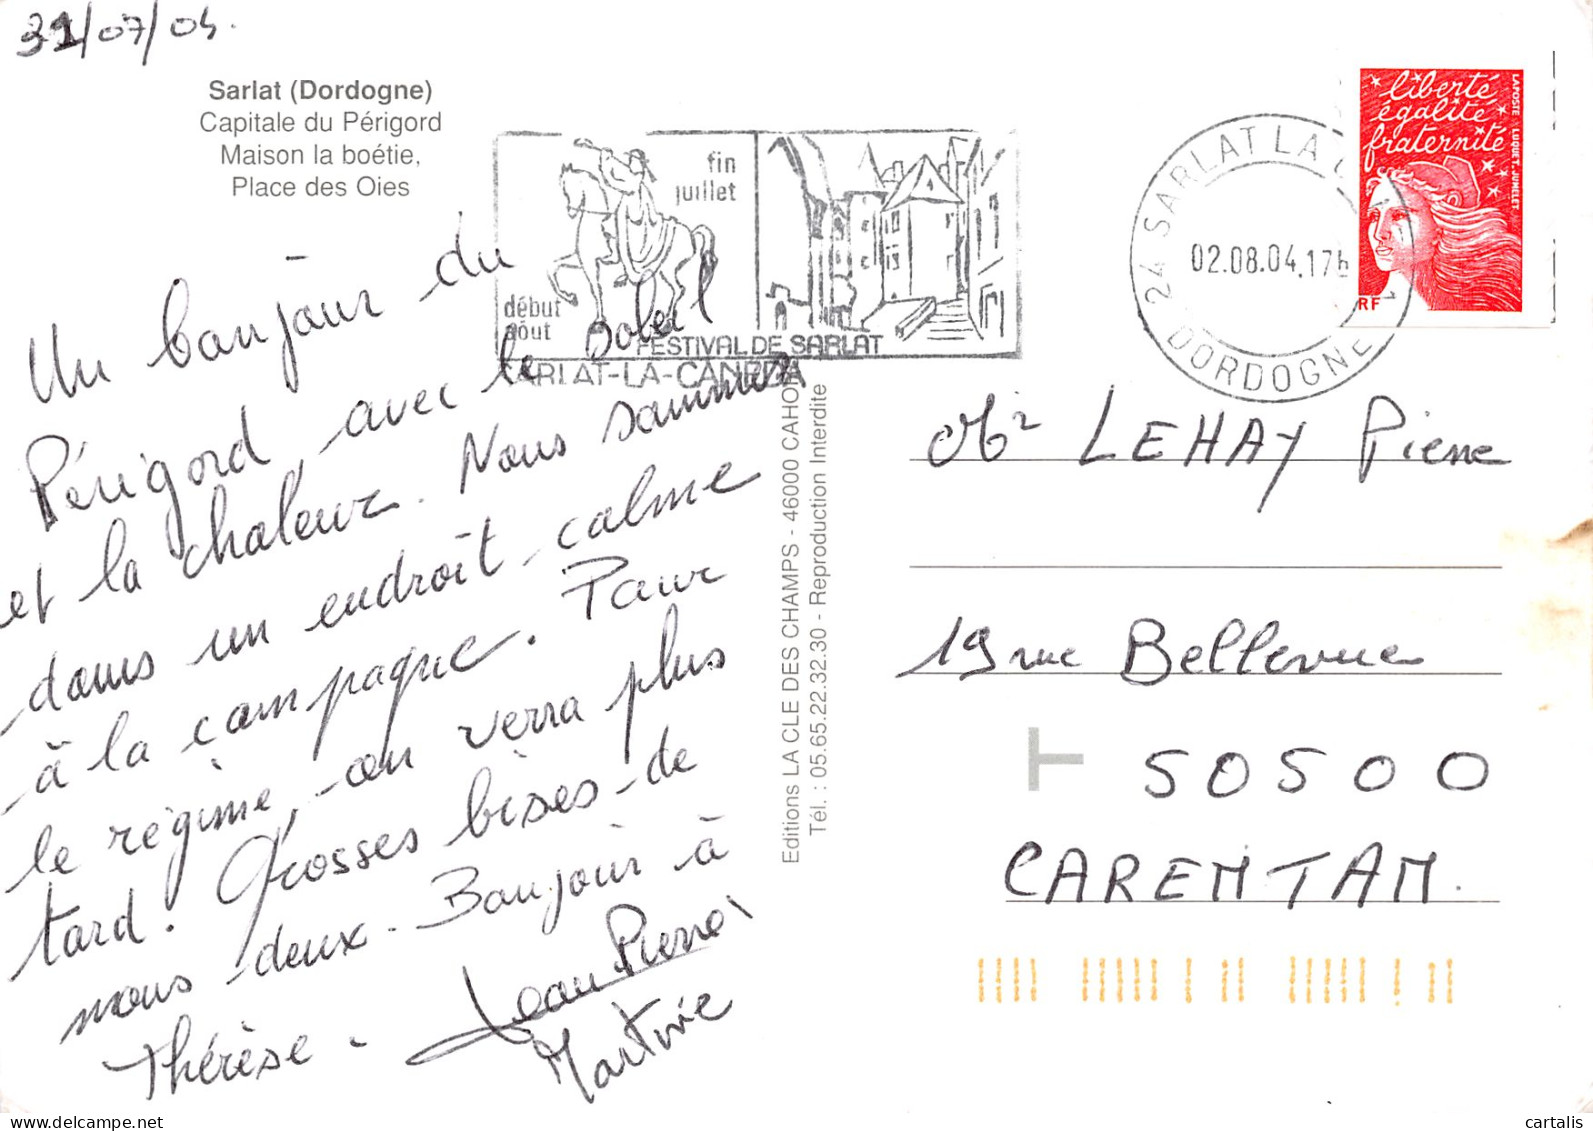 31/07/04.
Sarlat (Dordogne)
Capitale du Périgord
Maison la boétie,
Place des Oies
fin
juillet
début
août
FESTIVAL DE SARLAT
SARLAT-LA-CANEDA
24 SARLAT LA C
02.08.04.17h
DORDOGNE
liberté
égalité
fraternité
LAPOSTE LUQUET-JUMELET
RF
Un bonjour du
Périgord avec le soleil
et la chaleur. Nous sommes
dans un endroit calme
à la campagne. Pour
le régime, on verra plus
tard. Grosses bises de
nous deux. Bonjour à
Thérèse.
Jean Pierre
Martine
Editions LA CLE DES CHAMPS - 46000 CAHORS
Tél. : 05.65.22.32.30 - Reproduction Interdite
Mr LEHAY Pierre
19 rue Bellevue
T
50500
CARENTAN.
delcampe.net
cartalis